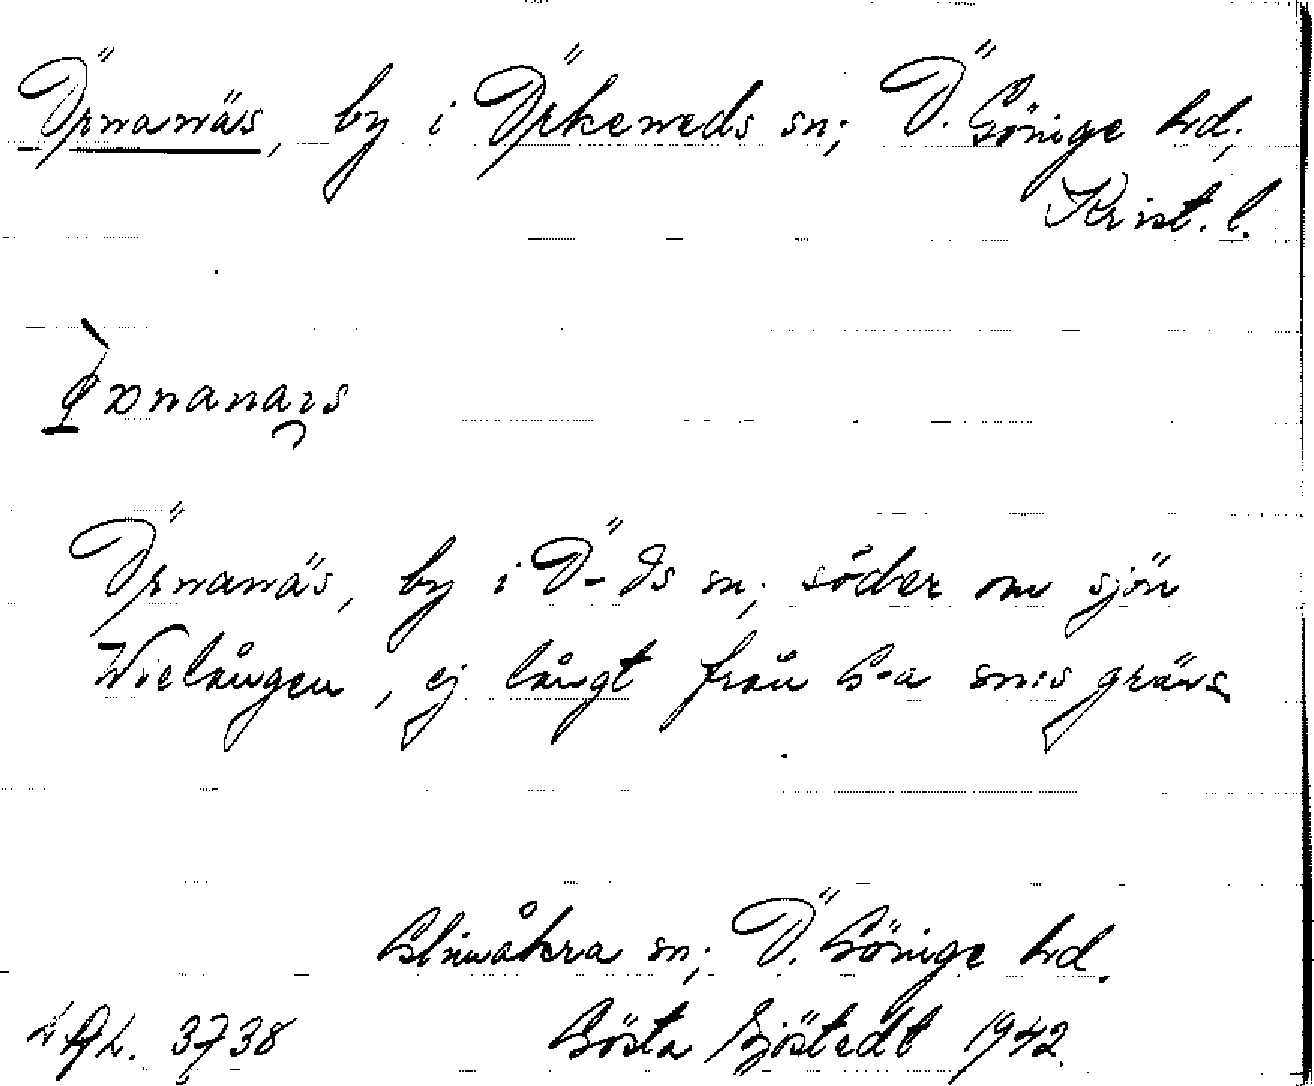 Örnanäs, by i Örkeneds sn; Ö. Göinge hd,
Krist. l.
Örnanäs, by i Ö-ds sn; söder om sjön
Wielången, ej långt från G-a sn:s gräns
Glimåkra sn; Ö. Göinge hd.
3738 Gösta Sjöstedt 1942.